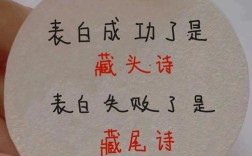 表白成功了是
藏头诗
表白失败了是
藏尾诗